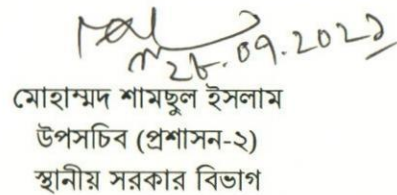 ২৮.০৭.২০২১
মোহাম্মদ শামছুল ইসলাম
উপসচিব (প্রশাসন-২)
স্থানীয় সরকার বিভাগ